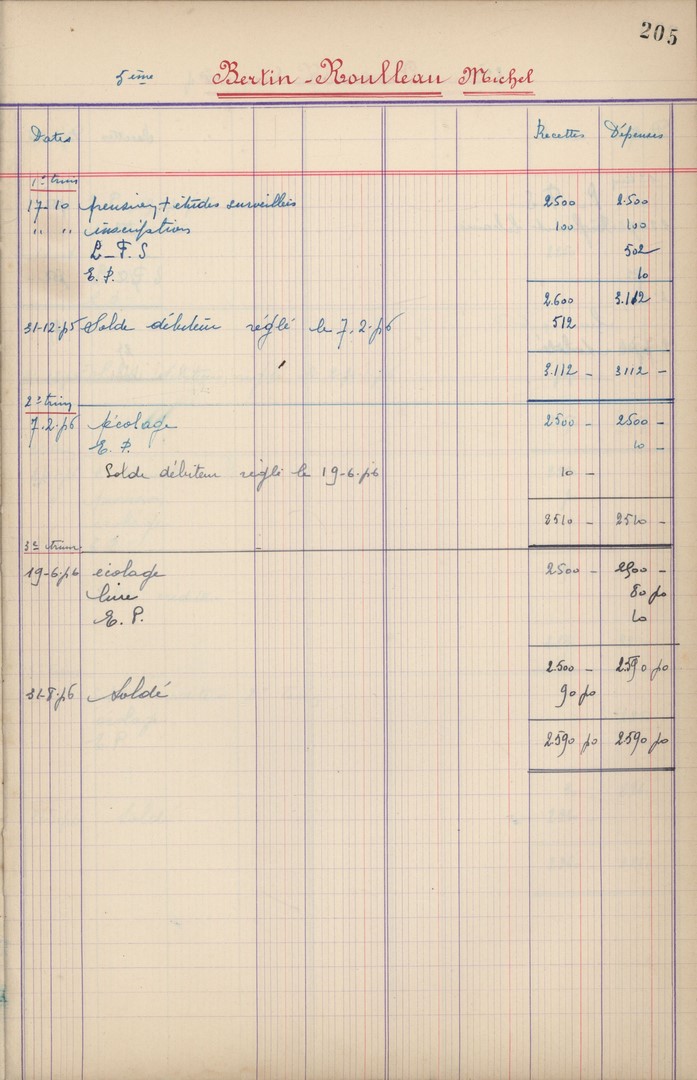 205
5ème Bertin-Roulleau Michel
Dates Recettes Dépenses
1er trim
17-10 + études surveillées 2500 2.500
" " inscriptions 100 100
L-F.S 502
E.P. 10
2.600 3.112
31-12-55 Solde débiteur réglé le 7.2.56 512
3.112 - 3112 -
2e trim
7.2.56 écolage 2500 - 2500 -
E.P. 10 -
Solde débiteur réglé le 19-6-56 10 -
2510 - 2510 -
3e trim
19-6-56 écolage 2500 - 2500 -
livre 80 50
E.P. 10
2.500 - 2590 50
31-8-56 Soldé 90 50
2590 50 2590 50